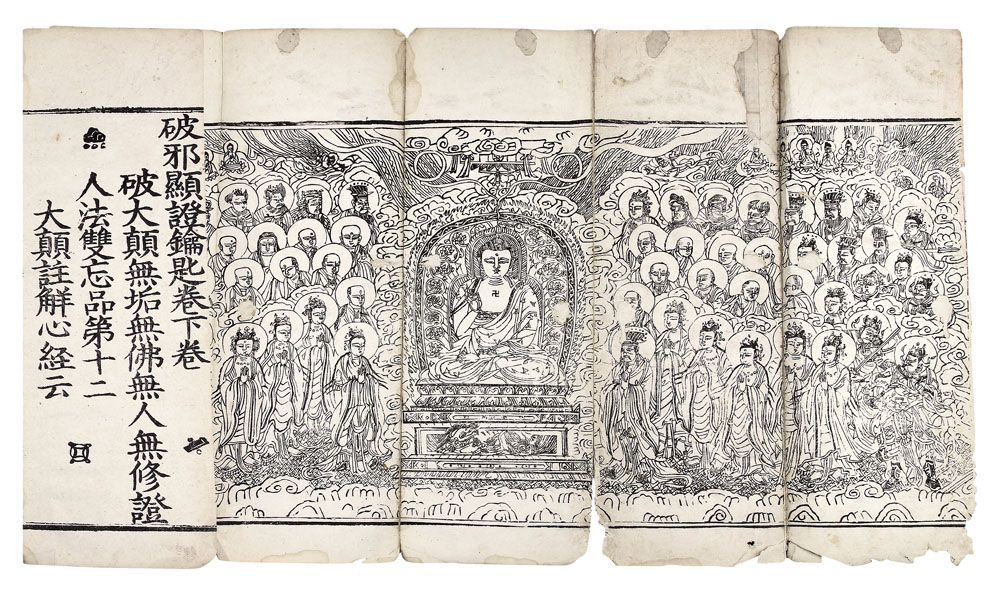 破邪顯證鑰匙卷下卷
破大顛無垢無佛無人無修證
人法雙忘品第十二
大顛註解心経云
卍